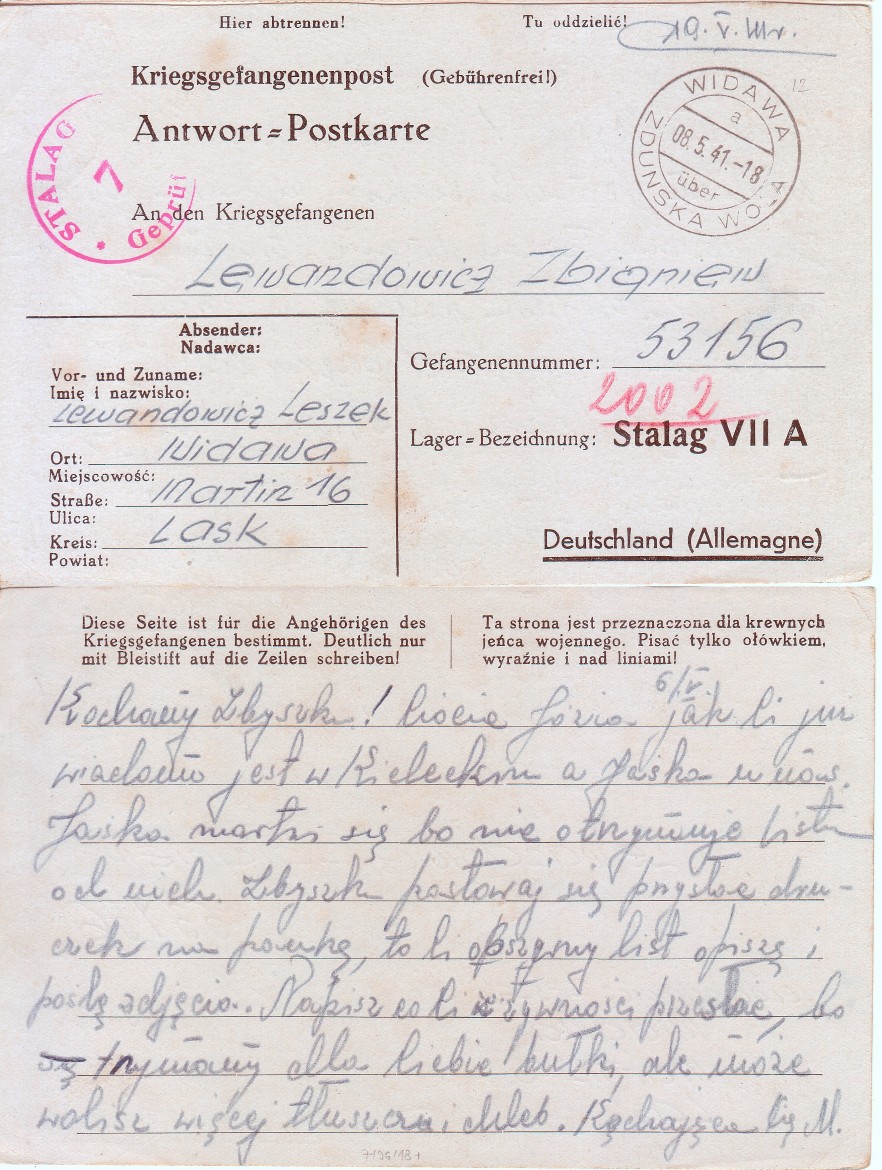 Hier abtrennen!
Tu oddzielić!
19. V.
Kriegsgefangenenpost (Gebührenfrei!)
Antwort=Postkarte
STALAG 7 * Geprüf
WIDAWA
a
08.5.41.-18
über
ZDUNSKA WOLA
12
An den Kriegsgefangenen
Lewandowicz Zbigniew
Absender:
Nadawca:
Vor- und Zuname:
Imię i nazwisko:
Lewandowicz Leszek
Ort: Widawa
Miejscowość:
Straße: Martin 16
Ulica:
Kreis: Lask
Powiat:
Gefangenennummer: 53156
2002
Lager=Bezeichnung: Stalag VII A
Deutschland (Allemagne)
Diese Seite ist für die Angehörigen des
Kriegsgefangenen bestimmt. Deutlich nur
mit Bleistift auf die Zeilen schreiben!
Ta strona jest przeznaczona dla krewnych
jeńca wojennego. Pisać tylko ołówkiem,
wyraźnie i nad liniami!
6/V.
Kochany Zbyszku! Ciocia Józia jak Ci już
wiadomo jest w Kieleckim a Jaśka
Jaśka martwi się bo nie otrzymuje listu
od nich. Zbyszku postaraj się przysłać dru-
czek na paczkę, to Ci obszerny list opiszę i
poślę zdjęcia. Napisz co Ci z żywności przesłać, bo
trzymamy dla Ciebie bułki, ale może
wolisz więcej tłuszczu i chleb. Kochająca Cię M.